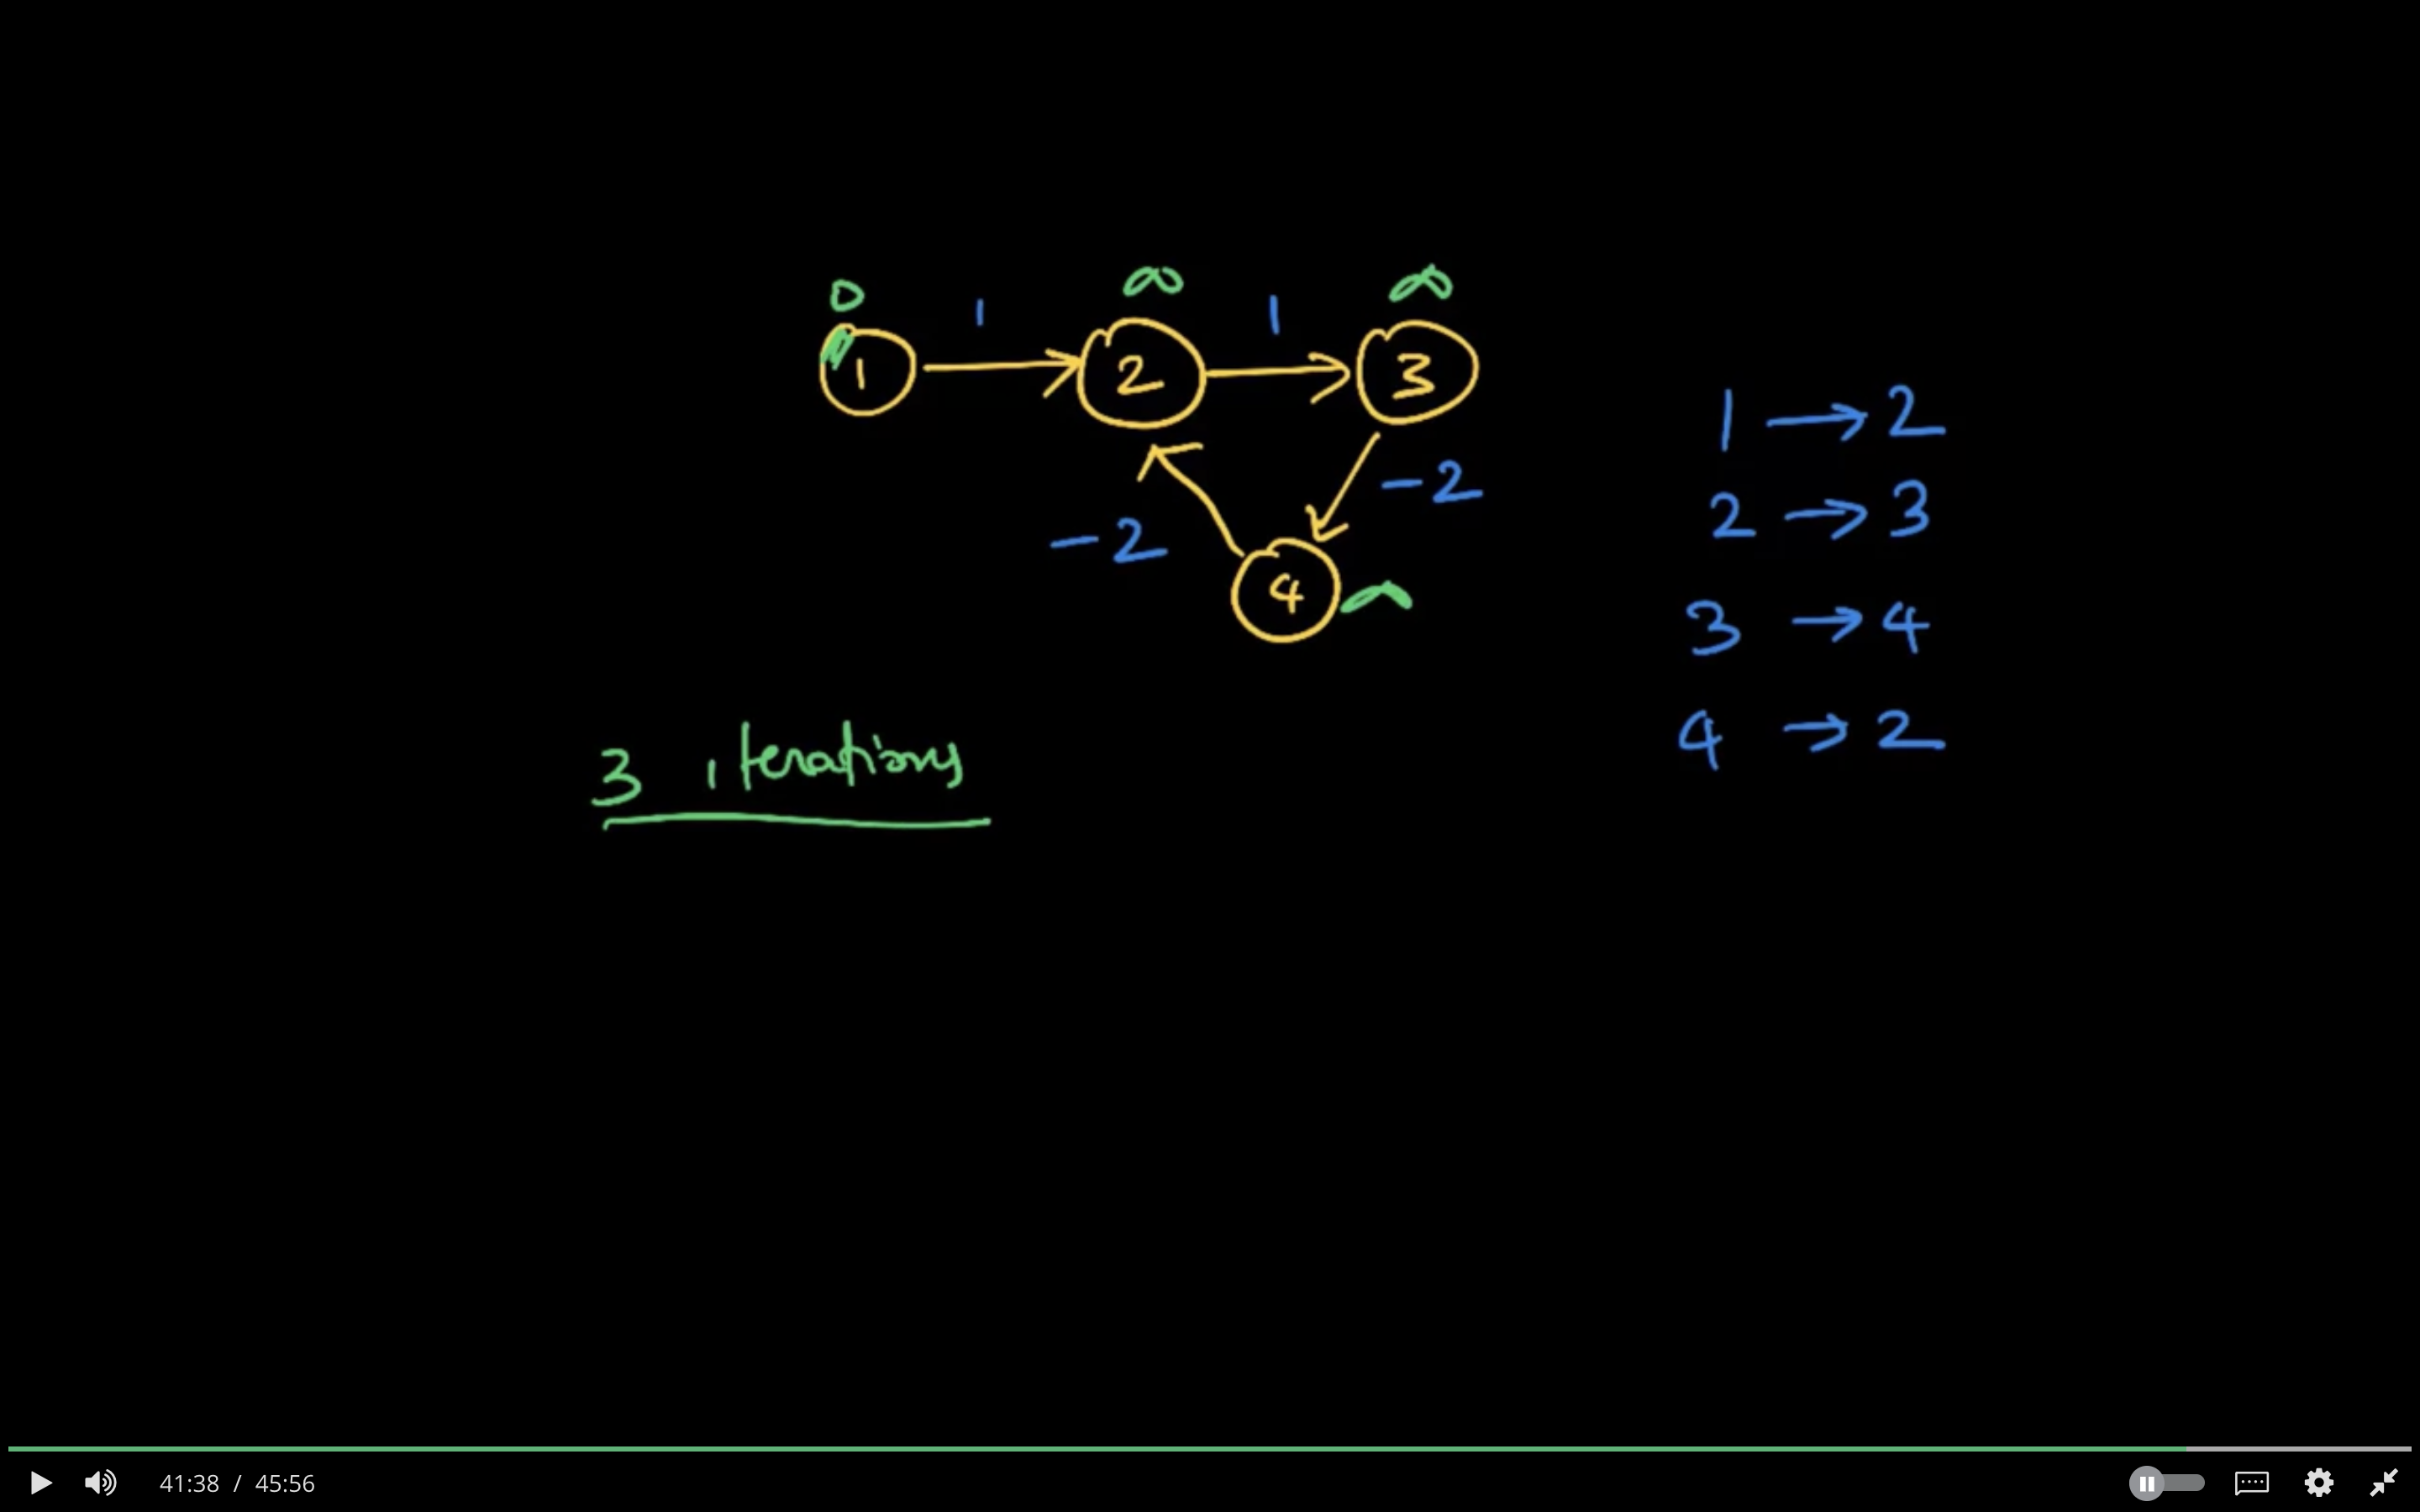 0 ∞ ∞
1 1
1 2 3
1 → 2
-2
2 → 3
-2
4 ∞
3 → 4
4 → 2
3 iterations
41:38 / 45:56